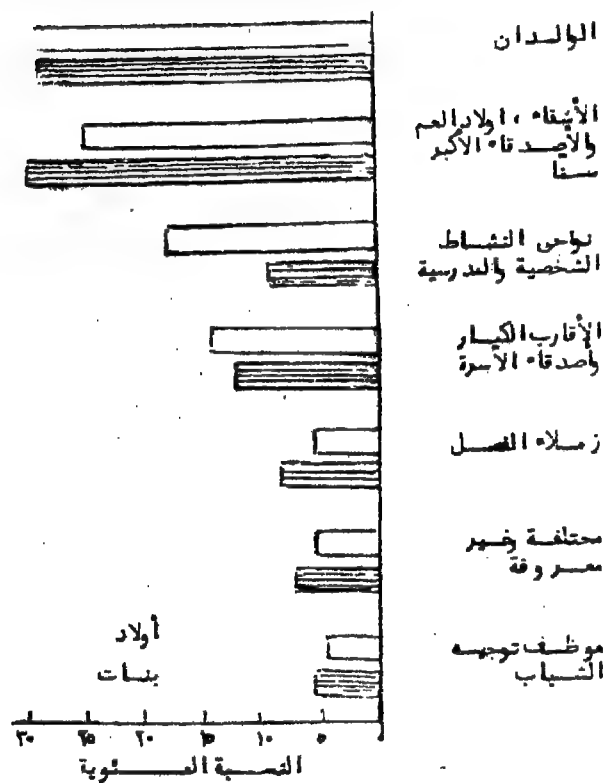 الوالدان
الأشقاء ، اولاد العم
والأصدقاء الأكبر
سنا
نواحى النشاط
الشخصية والمدرسية
الأقارب الكبار
وأصدقاء الأسرة
زملاء الفصل
مختلفة وغير
معروفة
موظف توجيه
الشباب
أولاد
بنات
٣٠ ٢٥ ٢٠ ١٥ ١٠ ٥ ٠
النسبة المئوية